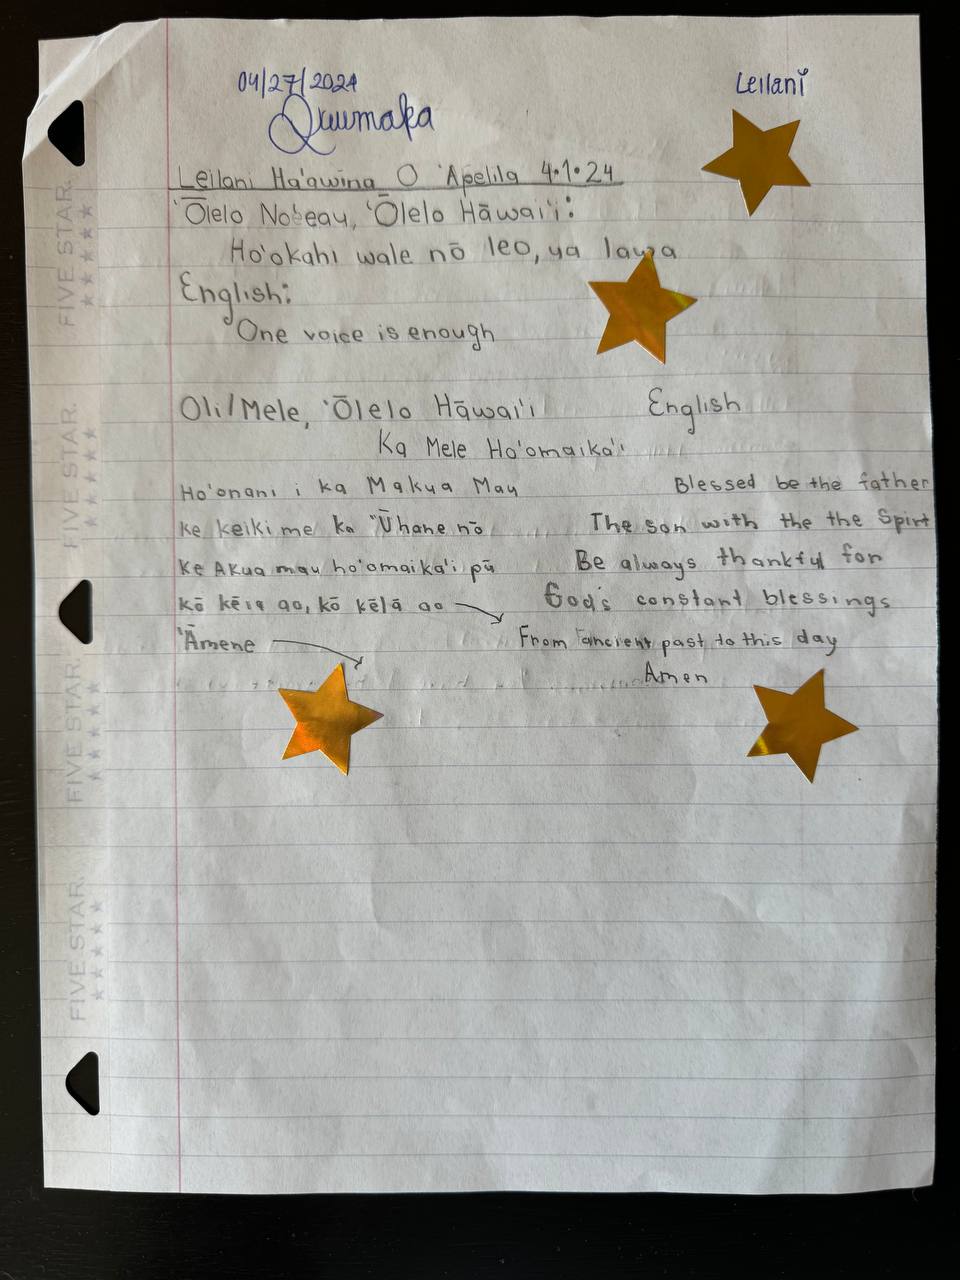 04/27/2024
Leilani
Leilani Ha'awina O 'Apelila 4•1•24
'Ōlelo No'eau, 'Ōlelo Hāwai'i:
Ho'okahi wale nō leo, ua lawa
English:
One voice is enough
Oli/Mele, 'Ōlelo Hāwai'i English
Ka Mele Ho'omaika'i
Ho'onani i ka Makua Mau Blessed be the father
ke keiki me ka 'Ūhane nō The son with the the Spirt
Ke Akua mau ho'omaika'i pū Be always thankful for
kō kēia ao, kō kēlā ao God's constant blessings
'Āmene From ancient past to this day
Amen
FIVE STAR.
FIVE STAR.
FIVE STAR.
FIVE STAR.